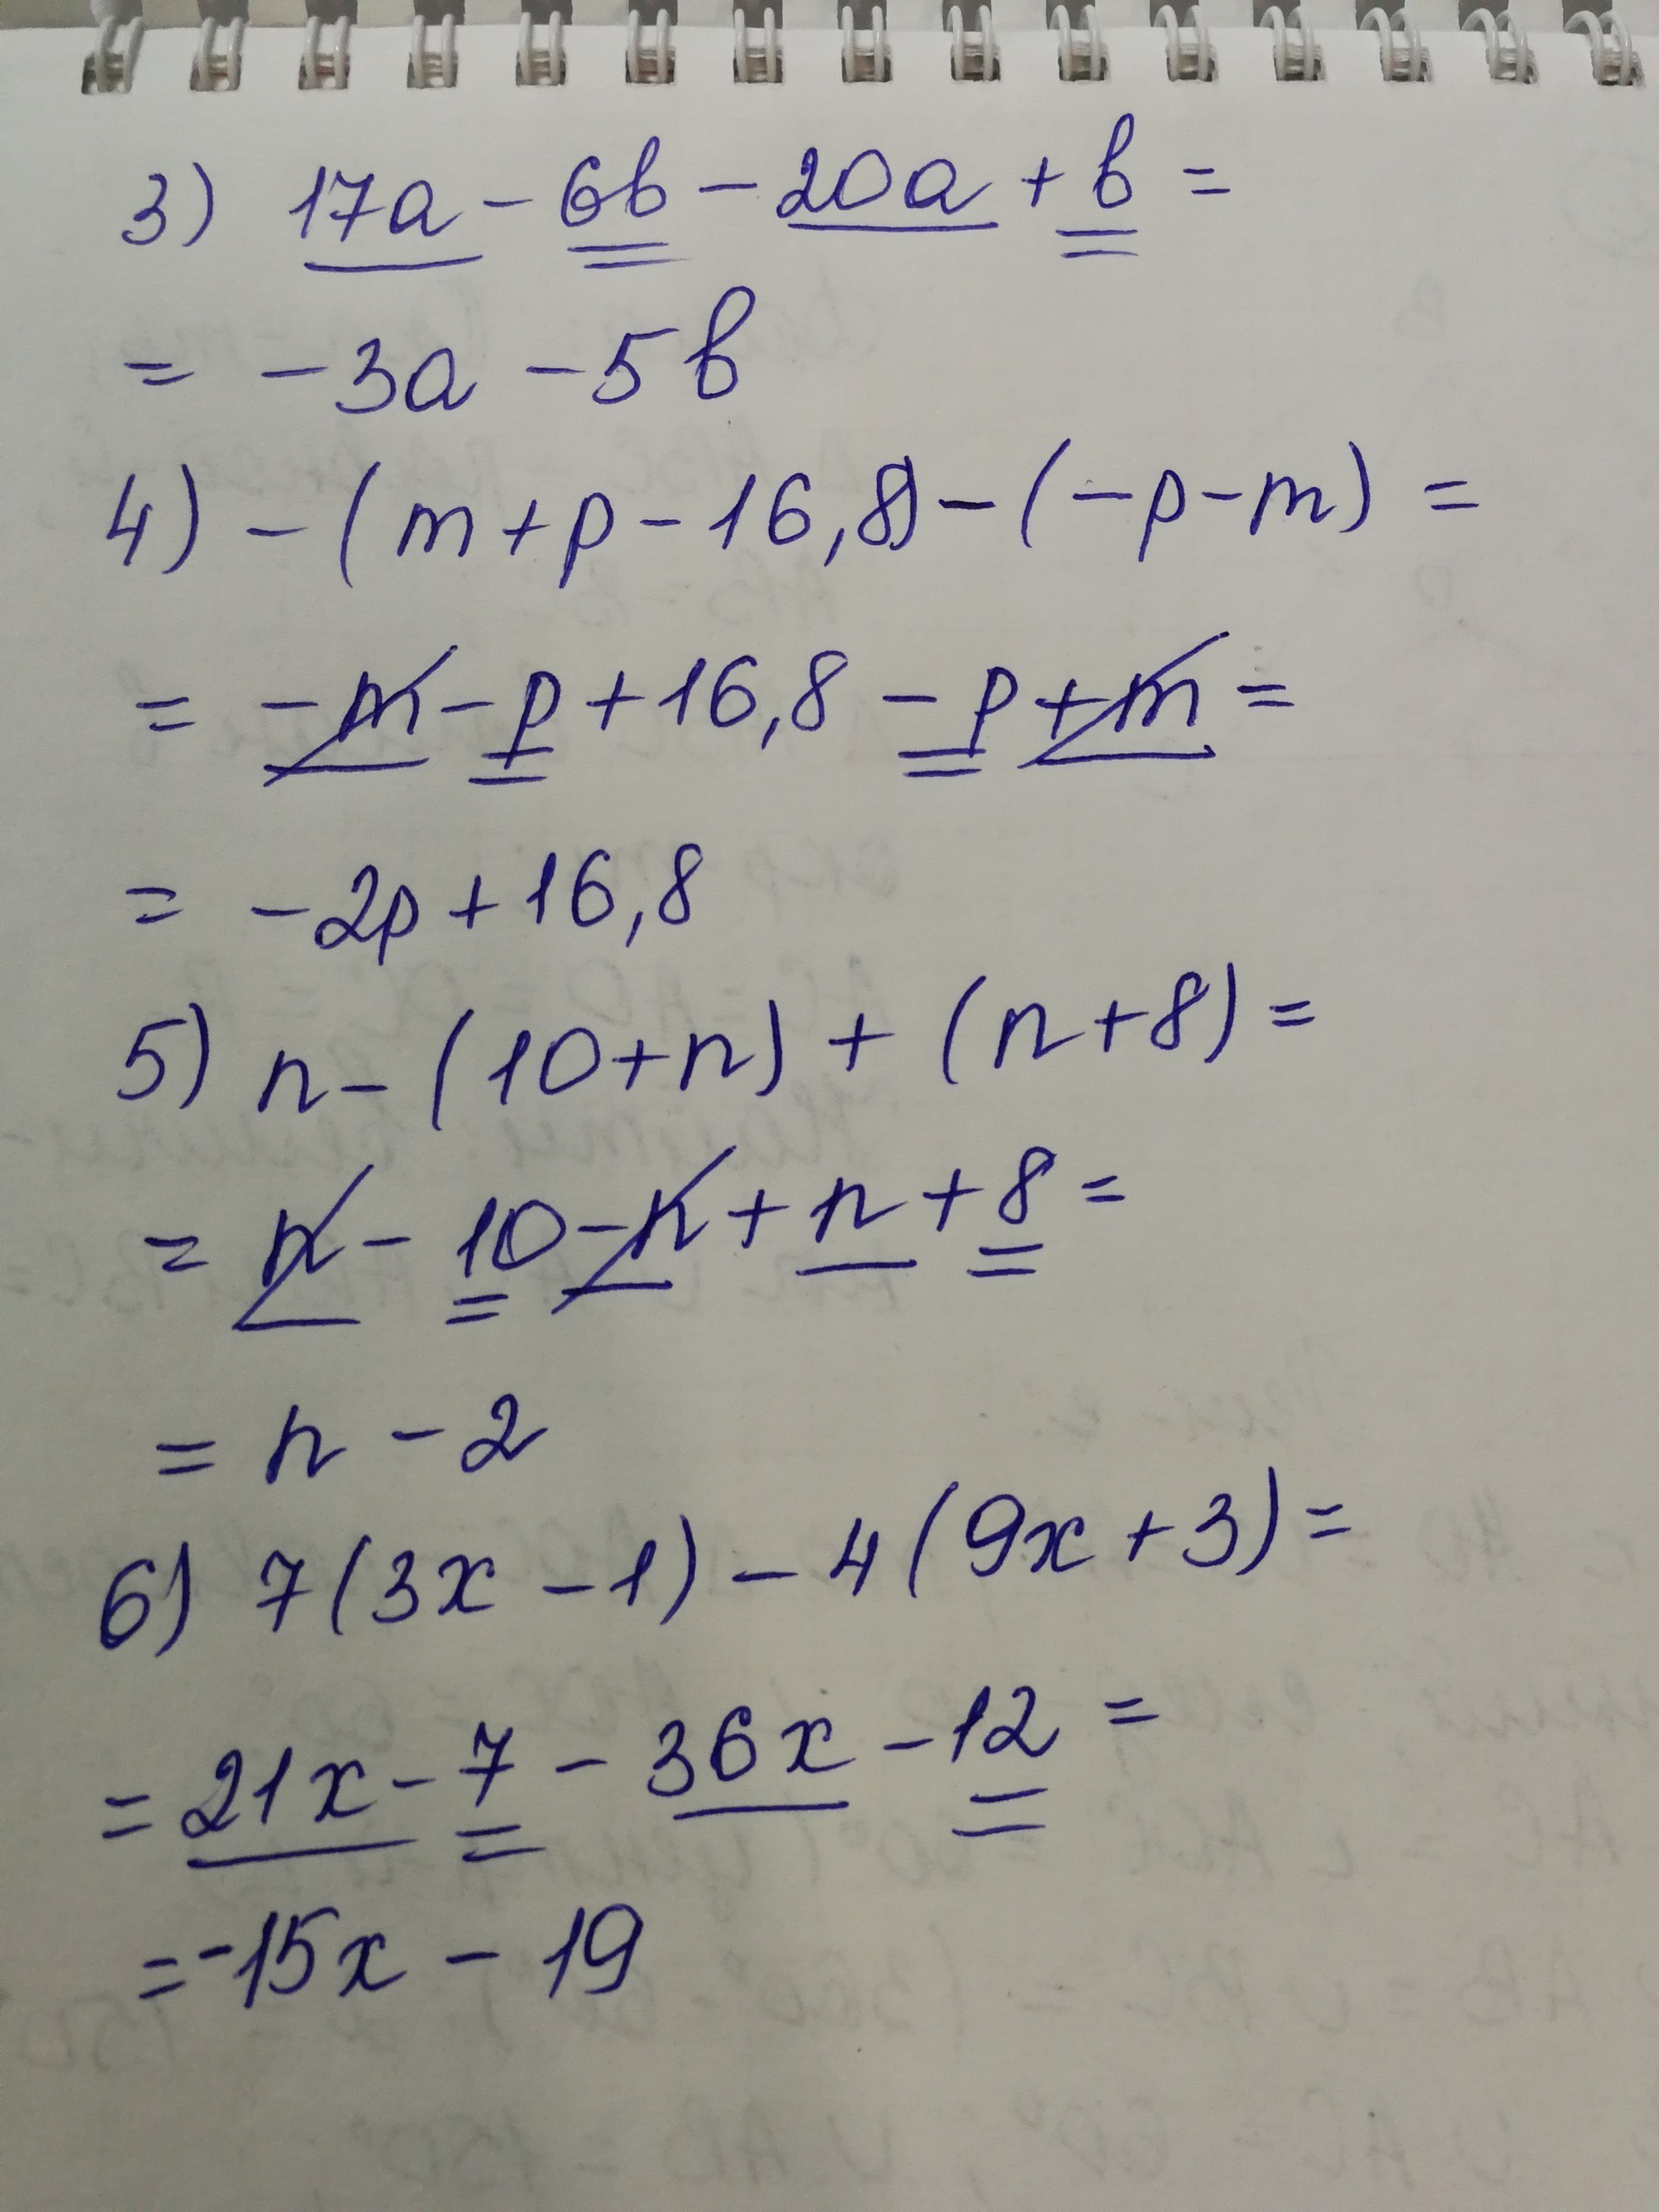 3) 17a - 6b - 20a + b =
= -3a - 5b
4) -(m+p-16,8)-(-p-m) =
= -m-p+16,8-p+m=
= -2p+16,8
5) n-(10+n)+(n+8)=
= n-10-n+n+8=
= n-2
6) 7(3x-1)-4(9x+3)=
= 21x-7-36x-12=
=-15x-19